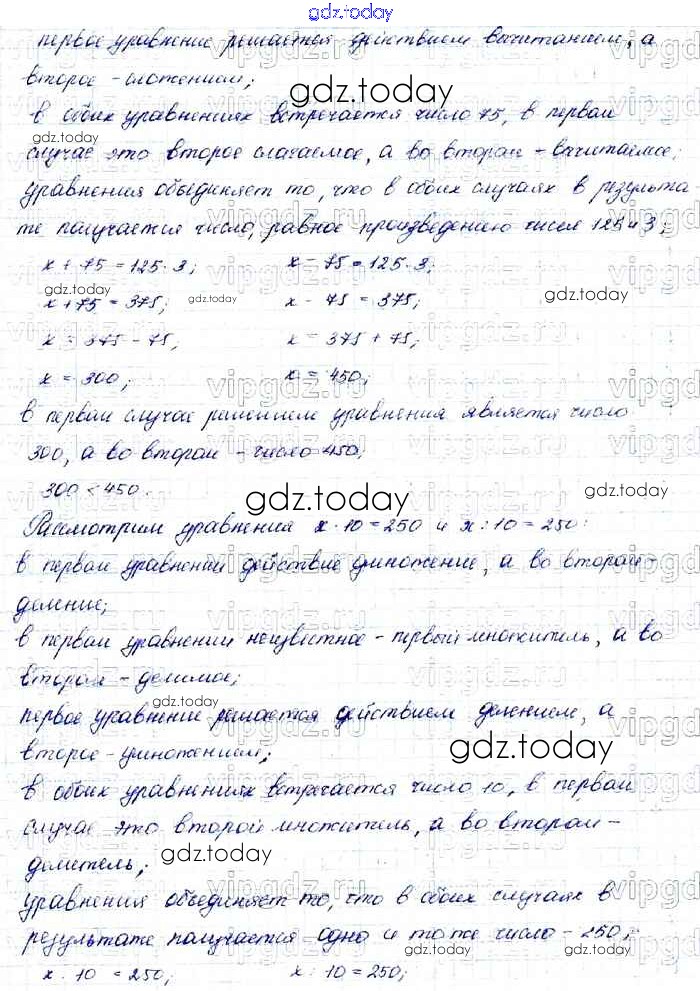 gdz.today
первое уравнение решается действием вычитанием, а
второе - сложением;
gdz.today
в обоих уравнениях встречается число 75, в первом
gdz.today
случае это второе слагаемое, а во втором - вычитаемое;
уравнения объединяет то, что в обоих случаях в результа
те получается число, равное произведению чисел 125 и 3;
x + 75 = 125 · 3; x - 75 = 125 · 3;
gdz.today gdz.today gdz.today
x + 75 = 375; x - 75 = 375;
x = 375 - 75; x = 375 + 75;
x = 300; x = 450;
в первом случае решением уравнения является число
300, а во втором - число 450;
300 < 450.
gdz.today gdz.today
Рассмотрим уравнения x · 10 = 250 и x : 10 = 250:
в первом уравнении действие умножение, а во втором -
деление;
в первом уравнении неизвестное - первый множитель, а во
втором - делимое;
gdz.today
первое уравнение решается действием делением, а
второе - умножением;
gdz.today
в обоих уравнениях встречается число 10, в первом
случае это второй множитель, а во втором -
делитель;
gdz.today
уравнения объединяет то, что в обоих случаях в
результате получается одно и то же число - 250;
gdz.today
x · 10 = 250; x : 10 = 250;
vipgdz.ru